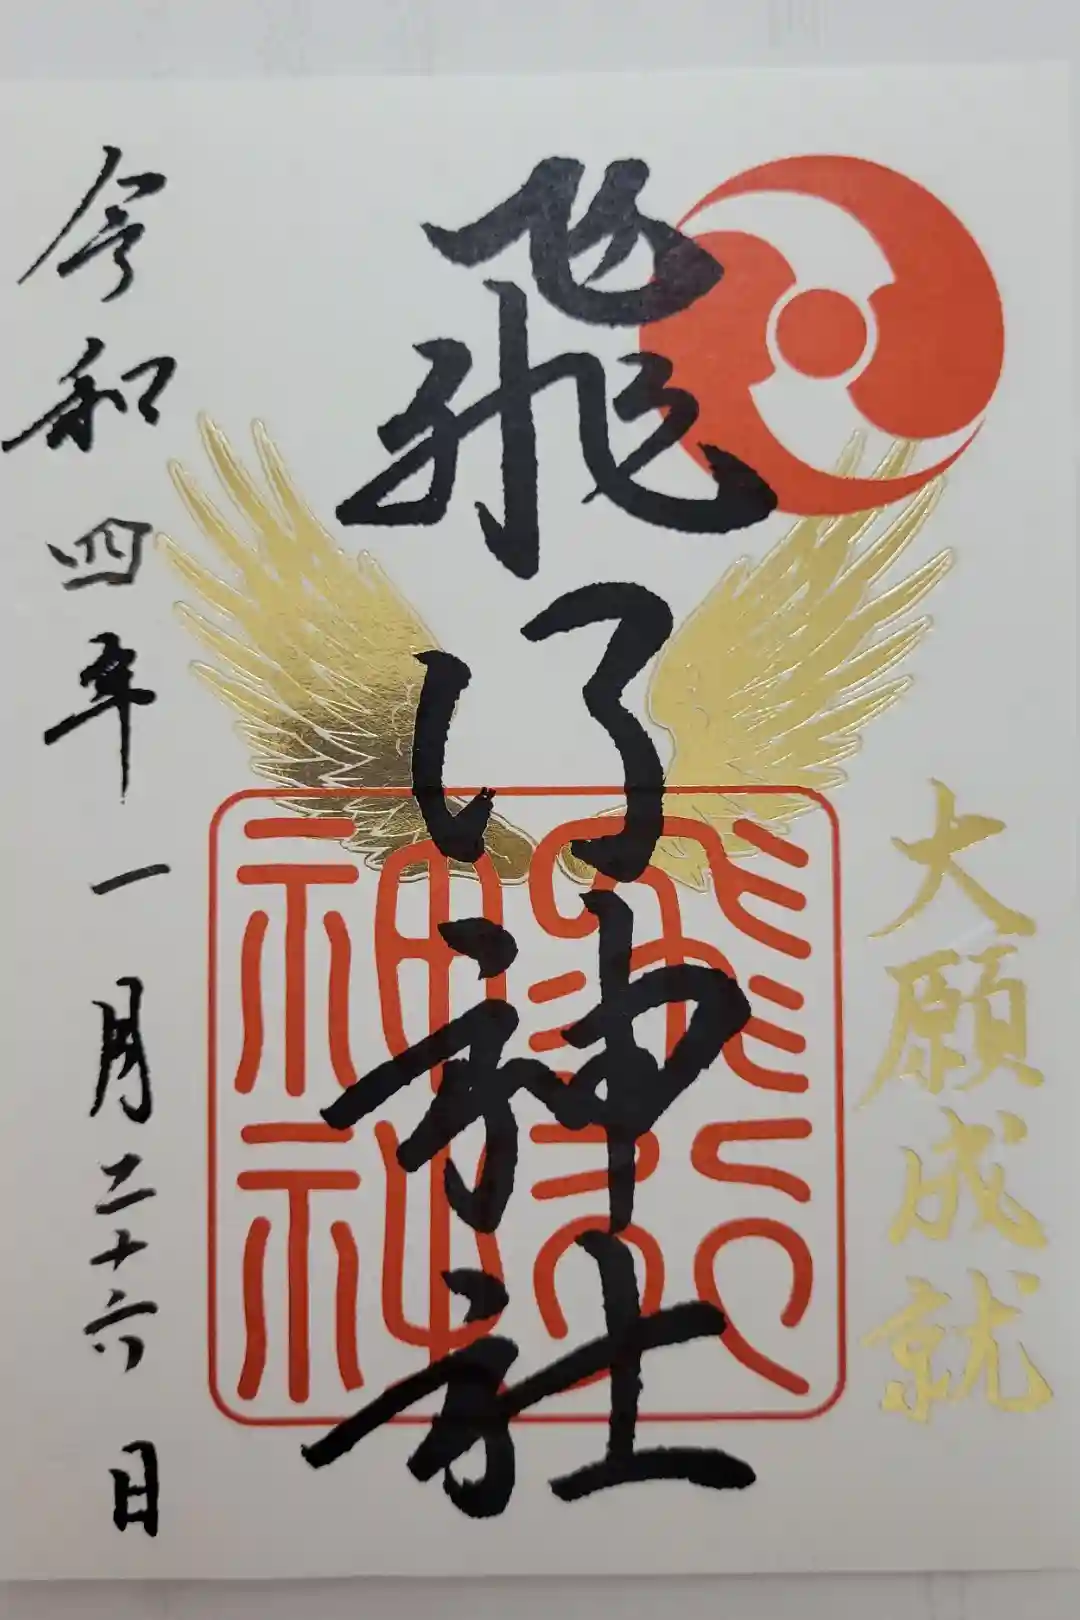 大願成就
飛行神社
飛行
神社
令和四年一月二十六日